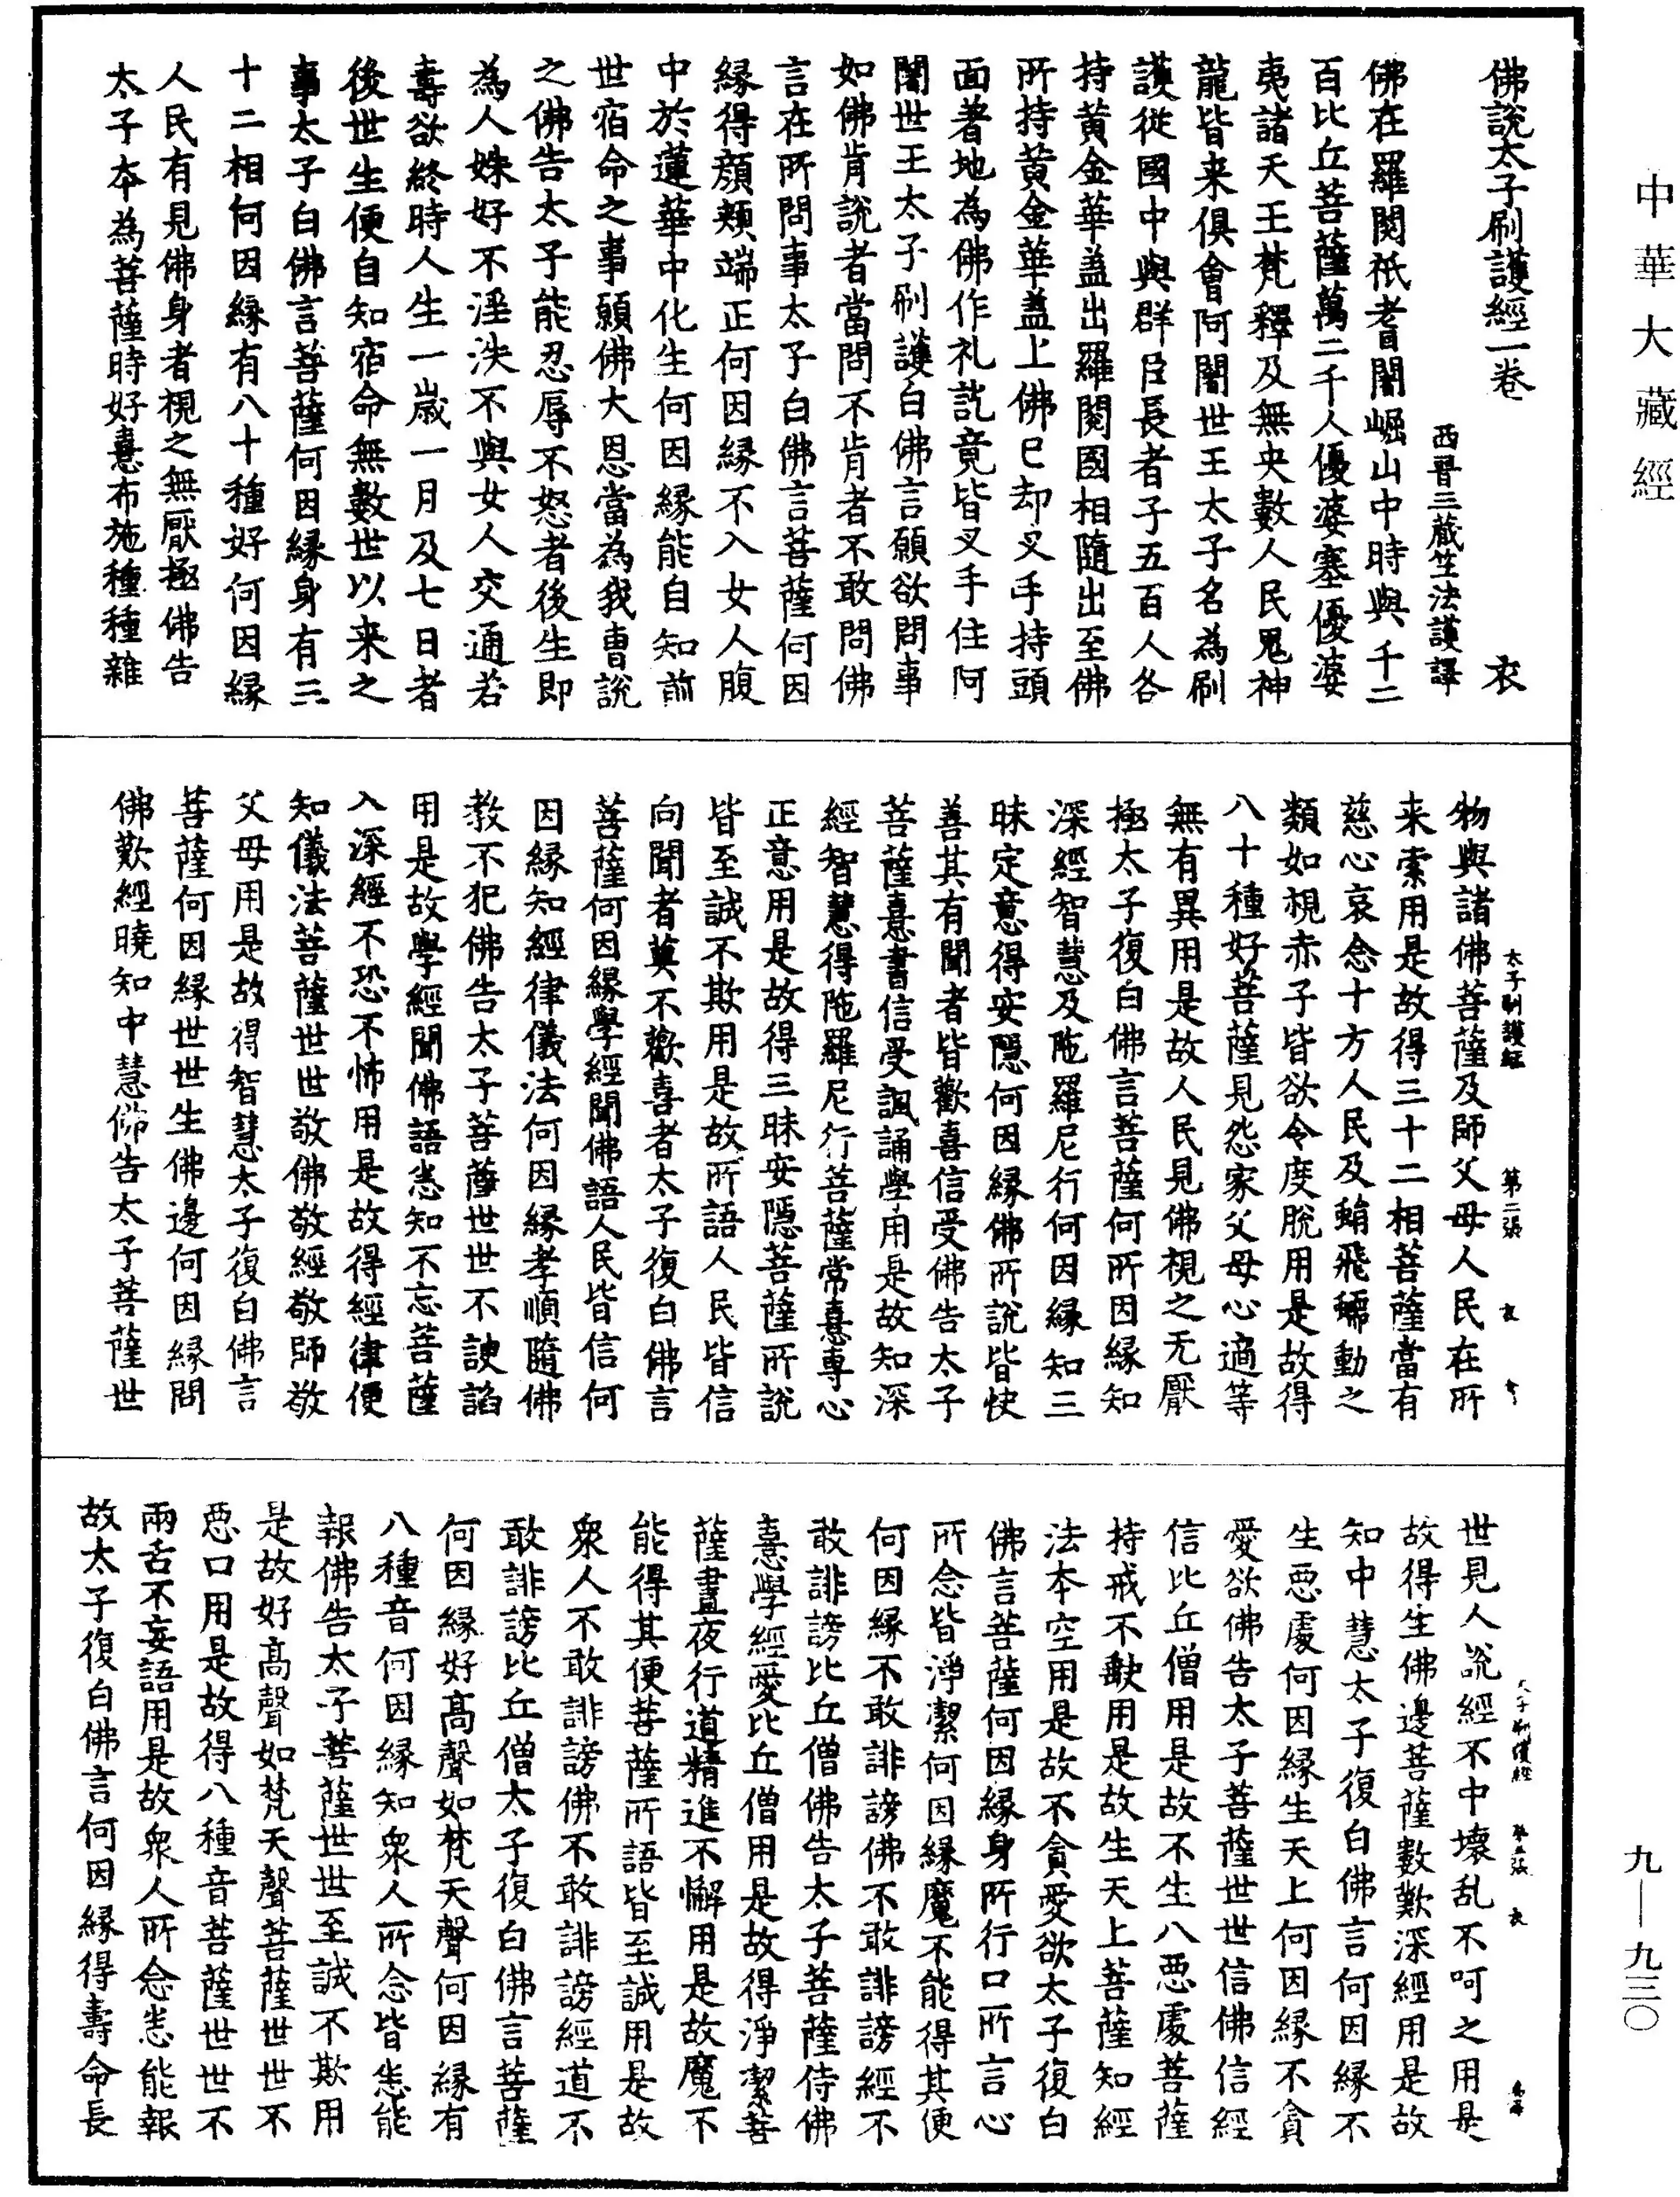 中華大藏經
佛說太子刷護經一卷　衣
西晉三藏竺法護譯
佛在羅閱祇耆闍崛山中時與千二
百比丘菩薩萬二千人優婆塞優婆
夷諸天王梵釋及無央數人民鬼神
龍皆来俱會阿闍世王太子名為刷
護從國中與群臣長者子五百人各
持黄金華盖出羅閱國相隨出至佛
所持黄金華盖上佛已却叉手持頭
面著地為佛作礼訖竟皆叉手住阿
闍世王太子刷護白佛言願欲問事
如佛肯說者當問不肯者不敢問佛
言在所問事太子白佛言菩薩何因
緣得顏頰端正何因緣不入女人腹
中於蓮華中化生何因緣能自知前
世宿命之事願佛大恩當為我曹說
之佛告太子能忍辱不怒者後生即
為人姝好不淫泆不與女人交通若
壽欲終時人生一歲一月及七日者
後世生便自知宿命無數世以来之
事太子白佛言菩薩何因緣身有三
十二相何因緣有八十種好何因緣
人民有見佛身者視之無厭極佛告
太子本為菩薩時好憙布施種種雜
太子刷護經　第二張　衣
物與諸佛菩薩及師父母人民在所
来索用是故得三十二相菩薩當有
慈心哀念十方人民及蜎飛蠕動之
類如視赤子皆欲令度脫用是故得
八十種好菩薩見怨家父母心適等
無有異用是故人民見佛視之无厭
極太子復白佛言菩薩何所因緣知
深經智慧及陁羅尼行何因緣知三
昧定意得安隱何因緣佛所說皆快
善其有聞者皆歡喜信受佛告太子
菩薩憙書信受諷誦學用是故知深
經智慧得陁羅尼行菩薩常憙專心
正意用是故得三昧安隱菩薩所說
皆至誠不欺用是故所語人民皆信
向聞者莫不歡喜者太子復白佛言
菩薩何因緣學經聞佛語人民皆信何
因緣知經律儀法何因緣孝順隨佛
教不犯佛告太子菩薩世世不諛諂
用是故學經聞佛語悉知不忘菩薩
入深經不恐不怖用是故得經律便
知儀法菩薩世世敬佛敬經敬師敬
父母用是故得智慧太子復白佛言
菩薩何因緣世世生佛邊何因緣問
佛歎經曉知中慧佛告太子菩薩世
世見人說經不中壞乱不呵之用是
故得生佛邊菩薩數歎深經用是故
知中慧太子復白佛言何因緣不
生惡處何因緣生天上何因緣不貪
愛欲佛告太子菩薩世世信佛信經
信比丘僧用是故不生八惡處菩薩
持戒不缺用是故生天上菩薩知經
法本空用是故不貪愛欲太子復白
佛言菩薩何因緣身所行口所言心
所念皆淨潔何因緣魔不能得其便
何因緣不敢誹謗佛不敢誹謗經不
敢誹謗比丘僧佛告太子菩薩侍佛
憙學經愛比丘僧用是故得淨潔菩
薩晝夜行道精進不懈用是故魔不
能得其便菩薩所語皆至誠用是故
衆人不敢誹謗佛不敢誹謗經道不
敢誹謗比丘僧太子復白佛言菩薩
何因緣好髙聲如梵天聲何因緣有
八種音何因緣知衆人所念皆悉能
報佛告太子菩薩世世至誠不欺用
是故好髙聲如梵天聲菩薩世世不
惡口用是故得八種音菩薩世世不
兩舌不妄語用是故衆人所念悉能報
故太子復白佛言何因緣得壽命長
九—九三〇